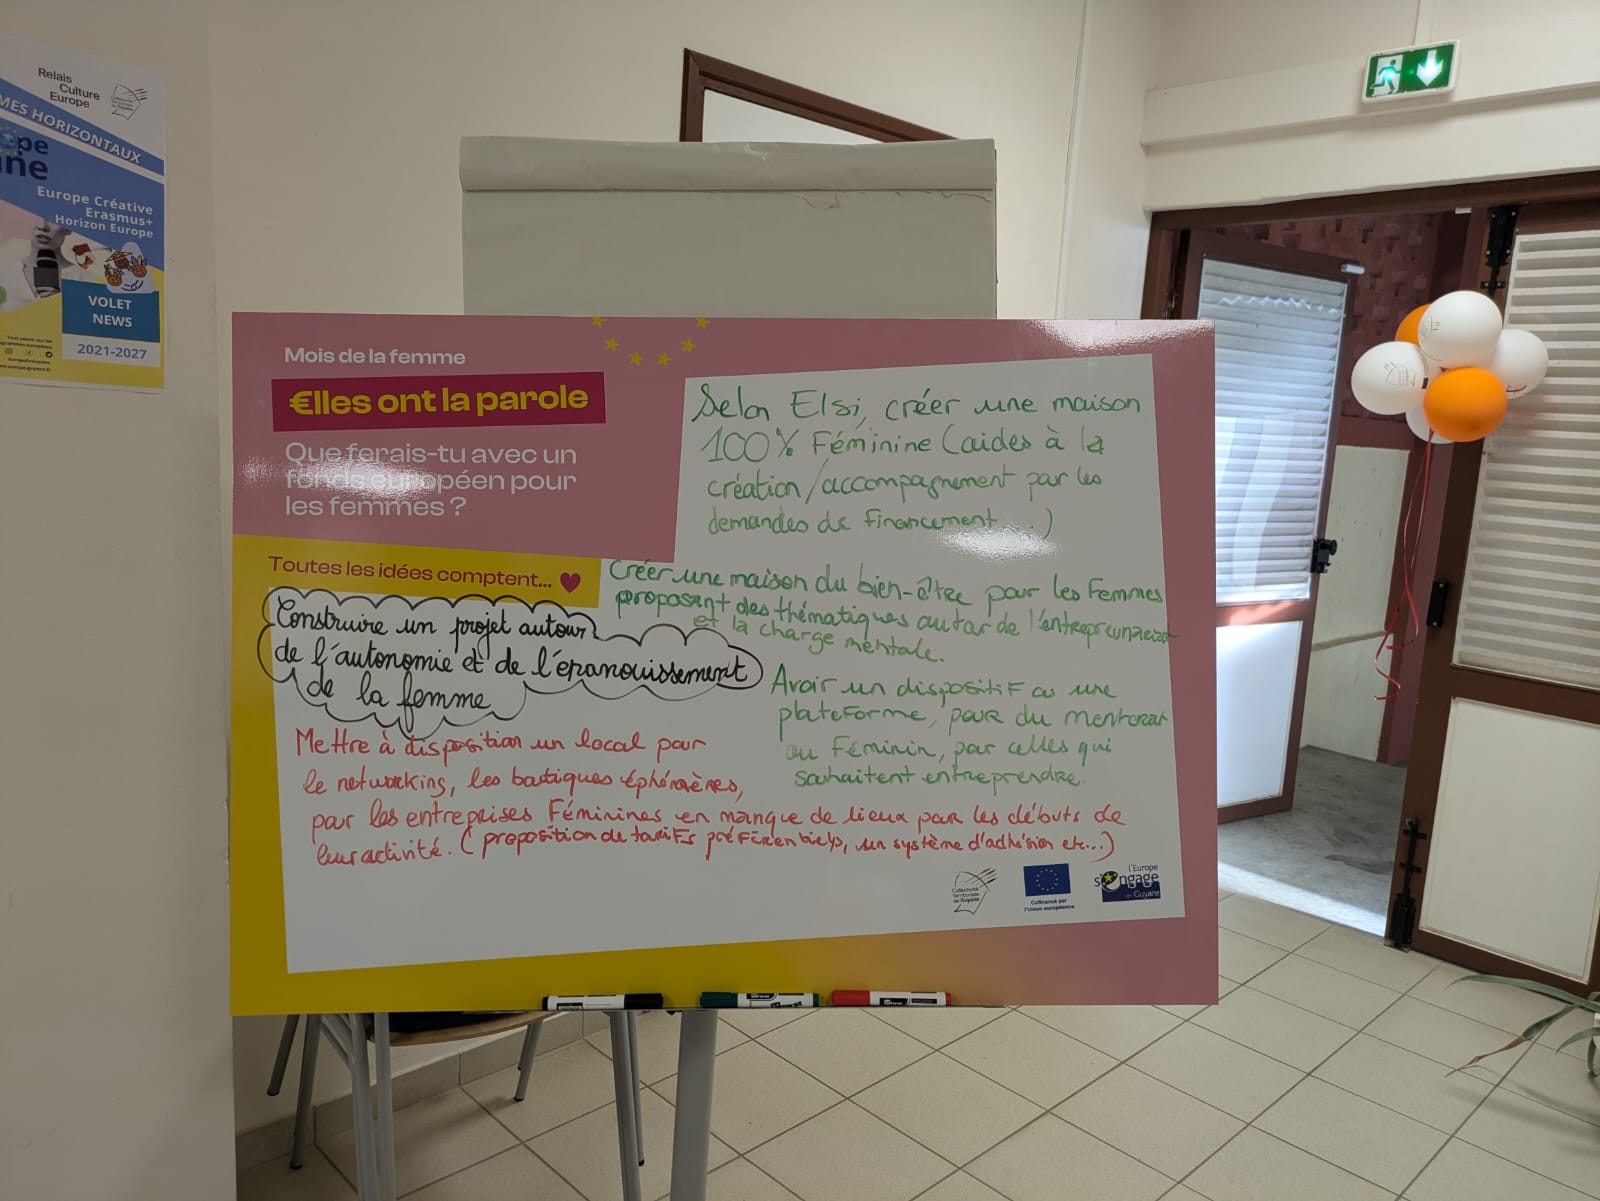 Relais
Culture
Europe
Collectivité
Territoriale
de Guyane
MES HORIZONTAUX
Europe Créative
Erasmus+
Horizon Europe
VOLET
NEWS
2021-2027
Mois de la femme
€lles ont la parole
Que ferais-tu avec un
fonds européen pour
les femmes ?
Toutes les idées comptent...
Selon Elsi, créer une maison
100% Féminine (aides à la
création/accompagnement par les
demandes de financement...)
Créer une maison du bien-être pour les Femmes
proposant des thématiques autour de l'entrepreunariat
et la charge mentale.
Construire un projet autour
de l'autonomie et de l'épanouissement
de la femme
Avoir un dispositif ou une
plateforme, pour du mentorat
au Féminin, pour celles qui
souhaitent entreprendre.
Mettre à disposition un local pour
le networking, les boutiques éphémères,
par les entreprises Féminines en manque de lieux pour les débuts de
leur activité. (proposition de tarifs préférentiels, un système d'adhésion etc...)
Collectivité
Territoriale
de Guyane
Cofinancé par
l'Union européenne
l'Europe
s'engage
en Guyane